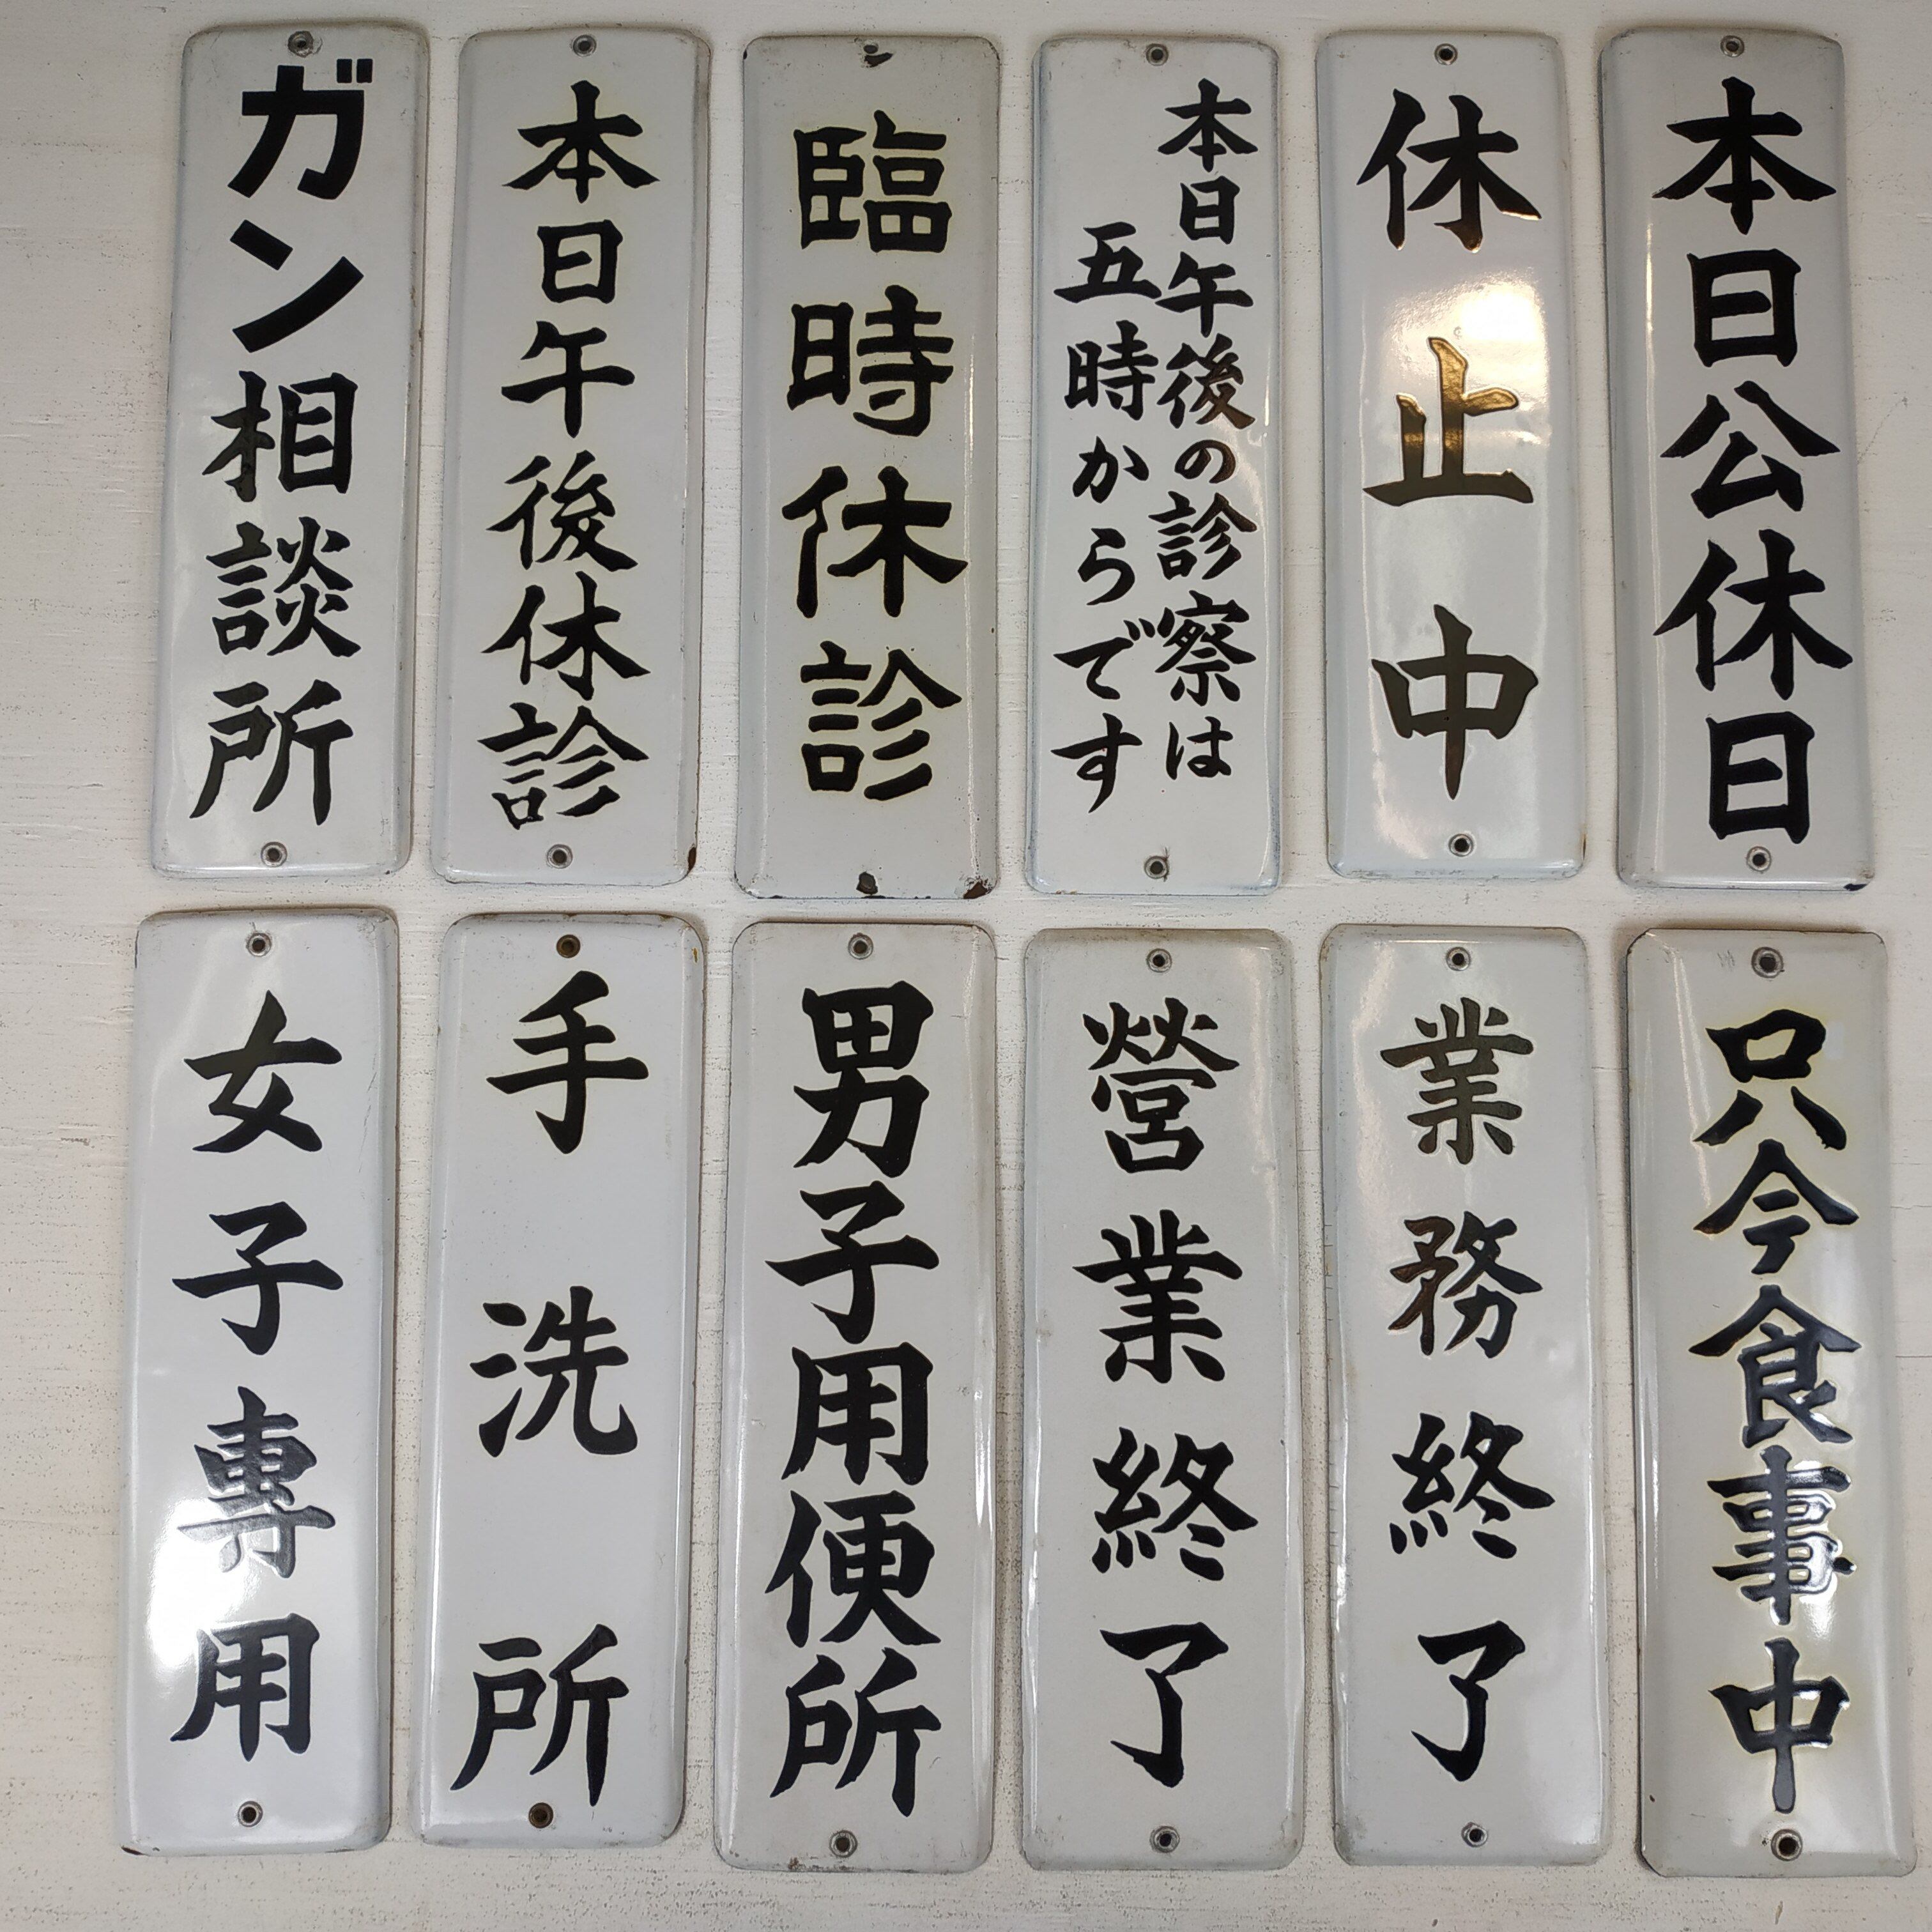 ガン相談所
本日午後休診
臨時休診
本日午後の診察は
五時からです
休止中
本日公休日
女子専用
手洗所
男子用便所
營業終了
業務終了
只今食事中